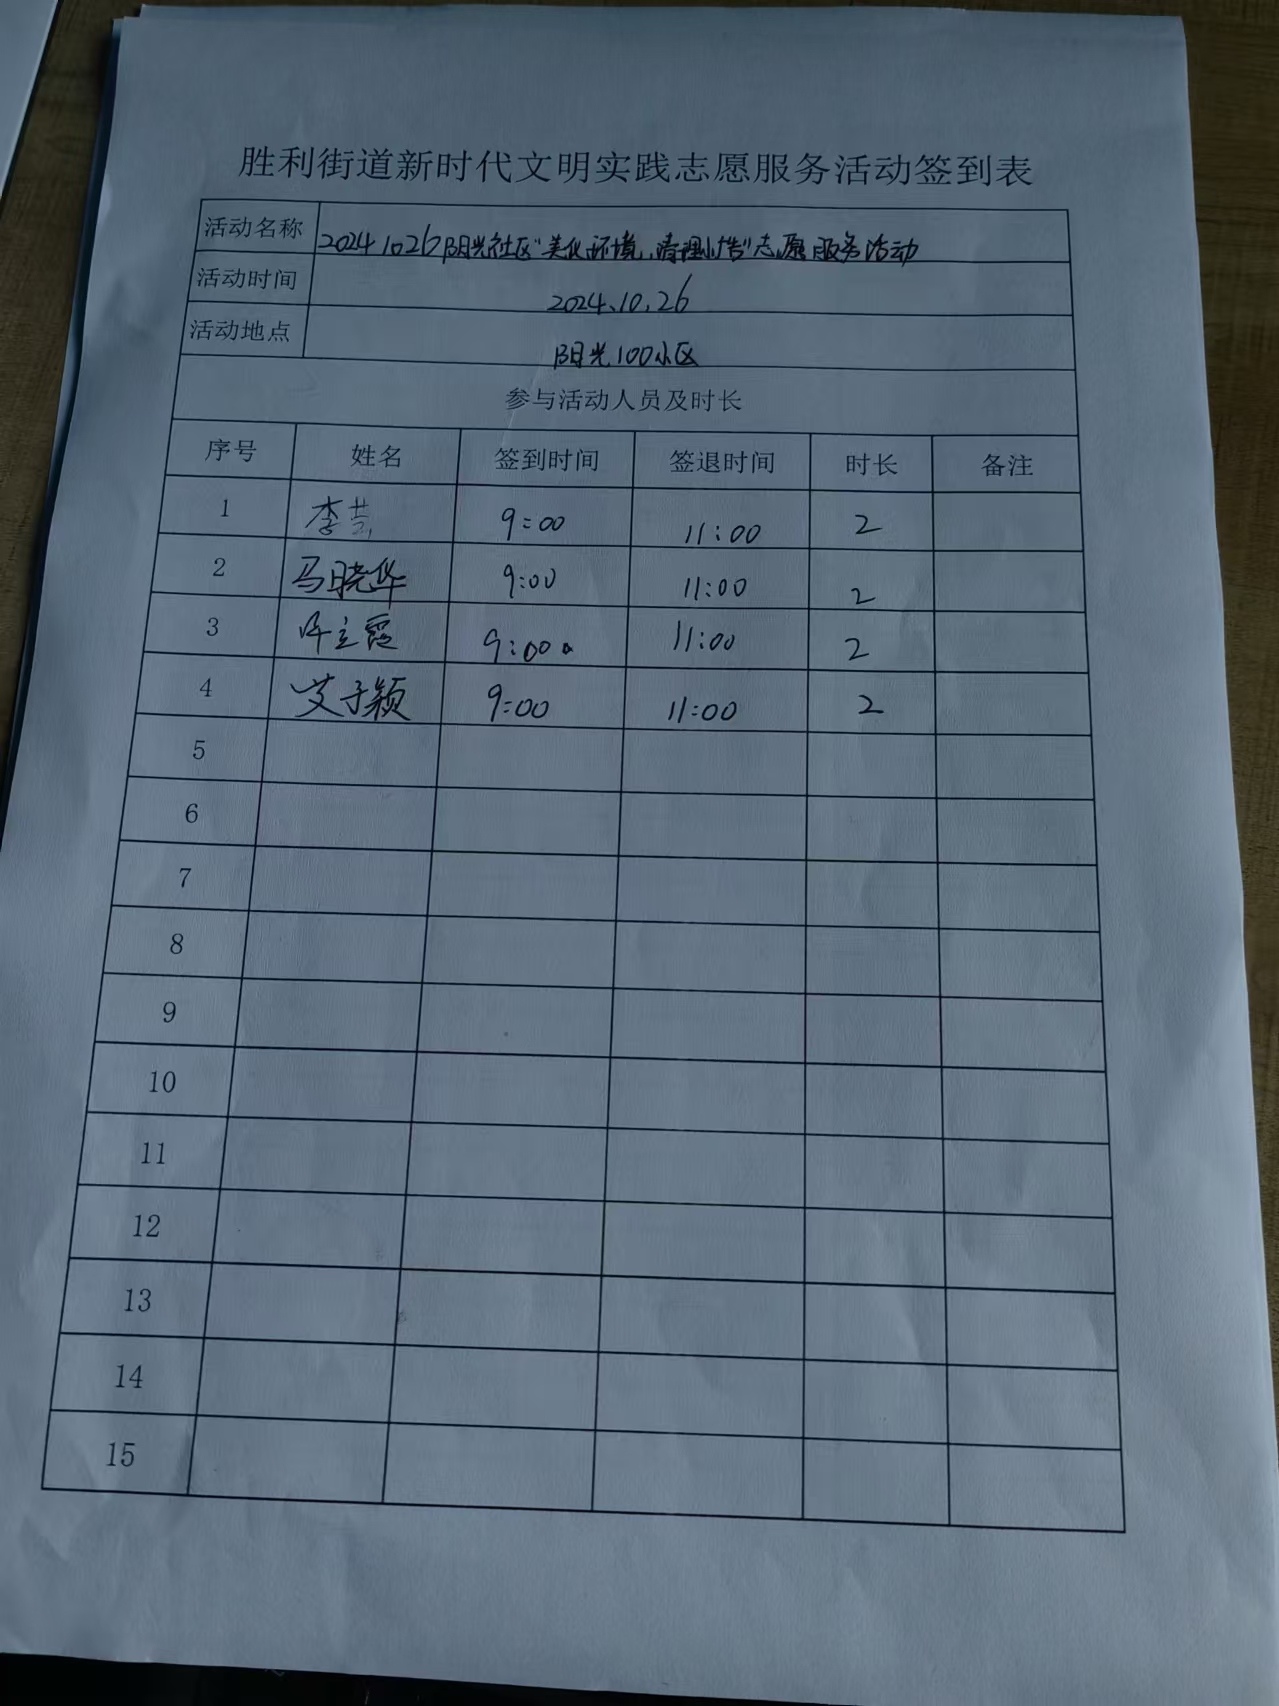 胜利街道新时代文明实践志愿服务活动签到表
活动名称 20241026阳光社区“美化环境,清理小广告”志愿服务活动
活动时间 2024.10.26
活动地点 阳光100小区
参与活动人员及时长
序号 姓名 签到时间 签退时间 时长 备注
1 李芸 9:00 11:00 2
2 马晓华 9:00 11:00 2
3 立霞 9:00 11:00 2
4 艾子颖 9:00 11:00 2
5
6
7
8
9
10
11
12
13
14
15